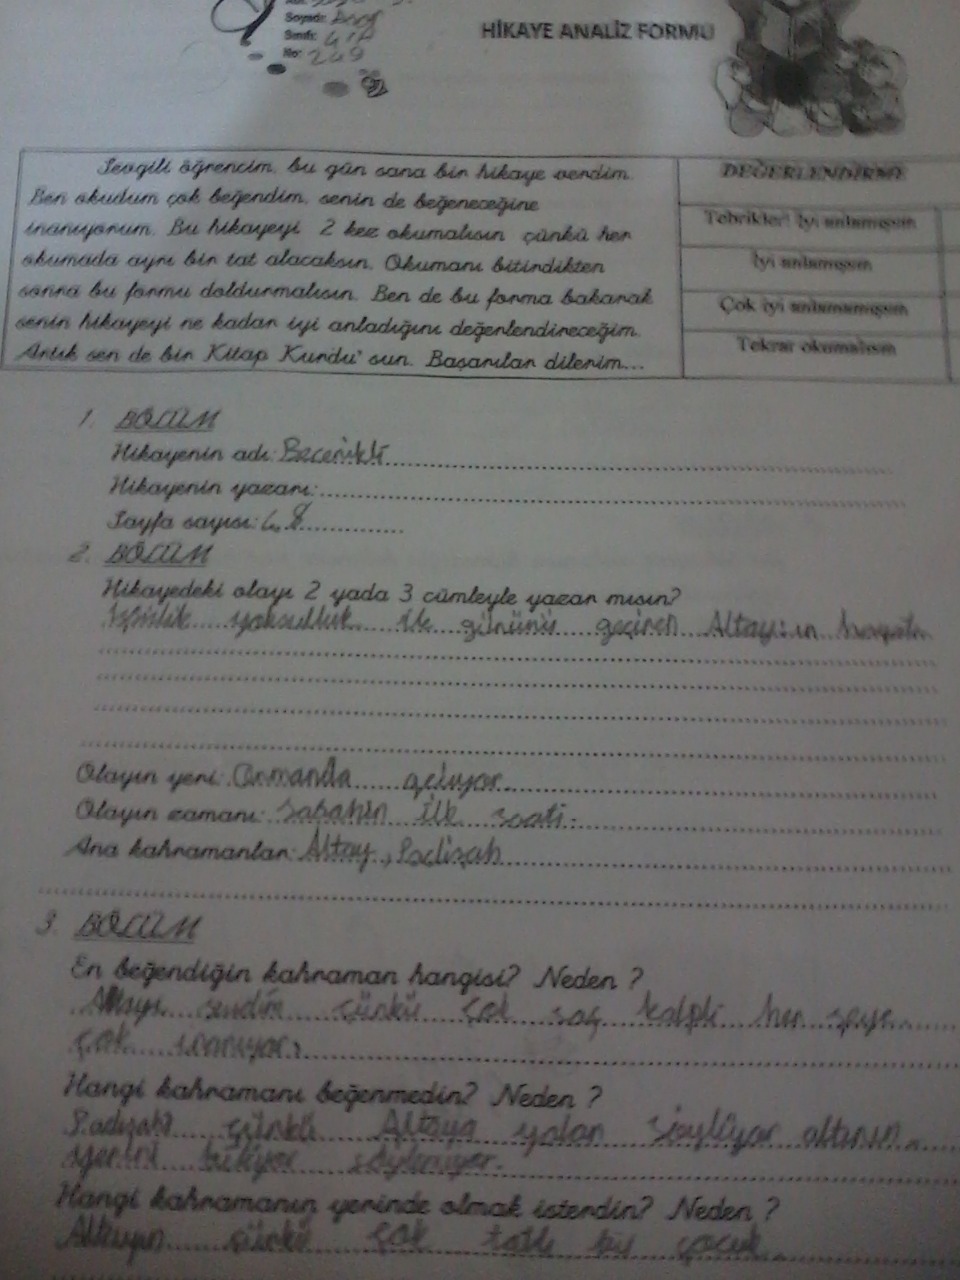 Soyadı:
Sınıfı: 4/A
No: 249
HİKAYE ANALİZ FORMU
Sevgili öğrencim, bu gün sana bir hikaye verdim.
Ben okudum çok beğendim, senin de beğeneceğine
inanıyorum. Bu hikayeyi 2 kez okumalısın çünkü her
okumada ayrı bir tat alacaksın. Okumanı bitirdikten
sonra bu formu doldurmalısın. Ben de bu forma bakarak
senin hikayeyi ne kadar iyi anladığını değerlendireceğim.
Artık sen de bir Kitap Kurdu' sun. Başarılar dilerim...
DEĞERLENDİRME
Tebrikler! İyi anlamışsın
İyi anlamışsın
Çok iyi anlamamışsın
Tekrar okumalısın
1. BÖLÜM
Hikayenin adı: Becerikli
Hikayenin yazarı:
Sayfa sayısı: 48
2. BÖLÜM
Hikayedeki olayı 2 yada 3 cümleyle yazar mısın?
yoksulluk ile gününü geçiren Altay'ın hayatı
Olayın yeri: Ormanda geçiyor
Olayın zamanı: Sabahın ilk saati.
Ana kahramanlar: Altay, Padişah
3. BÖLÜM
En beğendiğin kahraman hangisi? Neden ?
Altayı sevdim çünkü çok saf kalpli her şeye
çok inanıyor.
Hangi kahramanı beğenmedin? Neden ?
Padişahı çünkü Altaya yalan söylüyor altının
yerini biliyor söylemiyor.
Hangi kahramanın yerinde olmak isterdin? Neden ?
Altayın çünkü çok tatlı bir çocuk